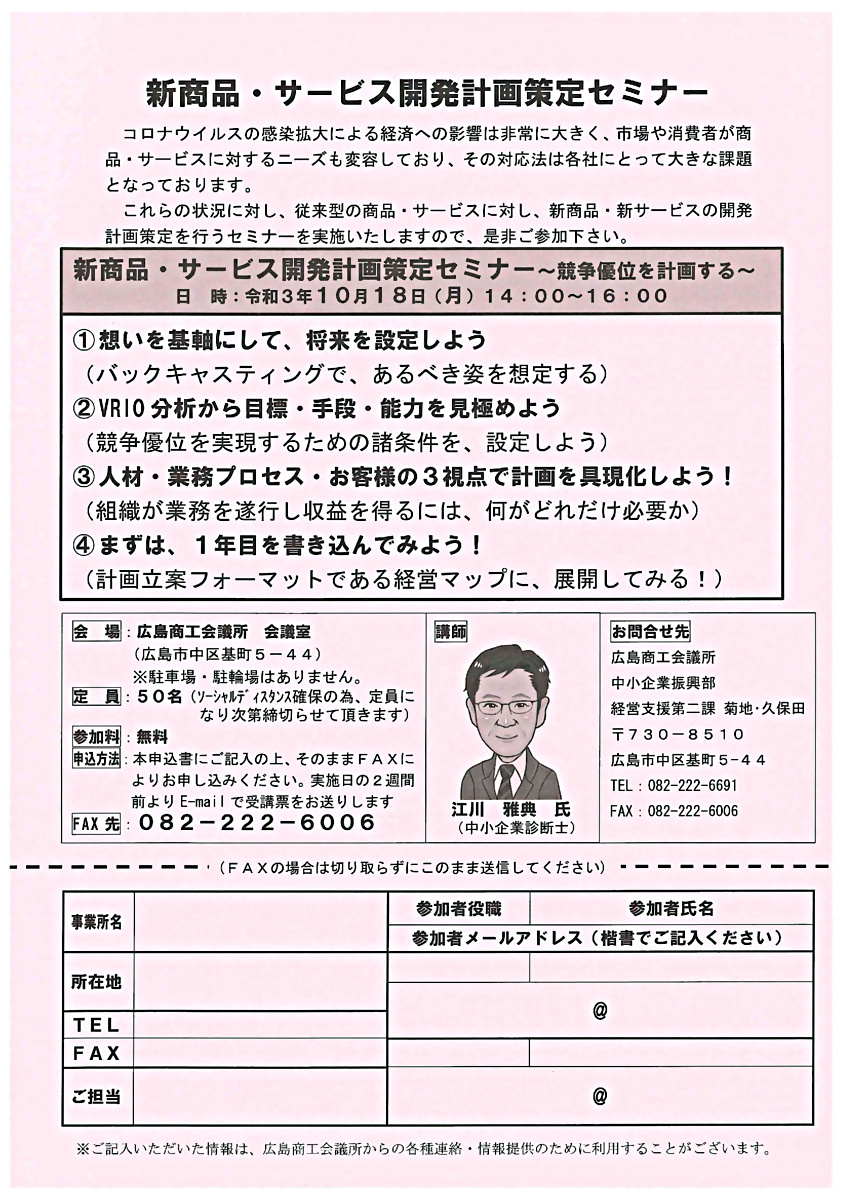 新商品・サービス開発計画策定セミナー
コロナウイルスの感染拡大による経済への影響は非常に大きく、市場や消費者が商
品・サービスに対するニーズも変容しており、その対応法は各社にとって大きな課題
となっております。
これらの状況に対し、従来型の商品・サービスに対し、新商品・新サービスの開発
計画策定を行うセミナーを実施いたしますので、是非ご参加下さい。
新商品・サービス開発計画策定セミナー～競争優位を計画する～
日 時：令和３年１０月１８日（月）１４：００～１６：００
①想いを基軸にして、将来を設定しよう
（バックキャスティングで、あるべき姿を想定する）
②VRIO分析から目標・手段・能力を見極めよう
（競争優位を実現するための諸条件を、設定しよう）
③人材・業務プロセス・お客様の３視点で計画を具現化しよう！
（組織が業務を遂行し収益を得るには、何がどれだけ必要か）
④まずは、１年目を書き込んでみよう！
（計画立案フォーマットである経営マップに、展開してみる！）
会 場：広島商工会議所 会議室
（広島市中区基町５－４４）
※駐車場・駐輪場はありません。
定 員：５０名（ｿｰｼｬﾙﾃﾞｨｽﾀﾝｽ確保の為、定員に
なり次第締切らせて頂きます）
参加料：無料
申込方法：本申込書にご記入の上、そのままＦＡＸに
よりお申し込みください。実施日の２週間
前よりE-mailで受講票をお送りします
FAX先：０８２－２２２－６００６
講師
江川 雅典 氏
（中小企業診断士）
お問合せ先
広島商工会議所
中小企業振興部
経営支援第二課 菊地・久保田
〒７３０－８５１０
広島市中区基町５-４４
TEL：082-222-6691
FAX：082-222-6006
（ＦＡＸの場合は切り取らずにこのまま送信してください）
事業所名
参加者役職 参加者氏名
参加者メールアドレス（楷書でご記入ください）
所在地
@
ＴＥＬ
ＦＡＸ
ご担当
@
※ご記入いただいた情報は、広島商工会議所からの各種連絡・情報提供のために利用することがございます。